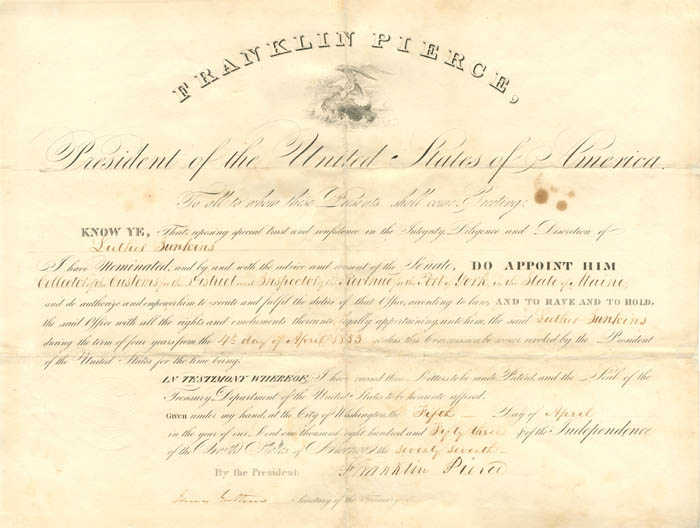 FRANKLIN PIERCE,
President of the United States of America.
To all to whom these Presents shall come, Greeting:
KNOW YE, That reposing special trust and confidence in the Integrity, Diligence and Discretion of
Luther Junkins
I have Nominated, and by and with the advice and consent of the Senate, DO APPOINT HIM
Collector of the Customs for the District and Inspector of the Revenue for the Port of York, in the State of Maine
and do authorize and empower him to execute and fulfil the duties of that Office according to law; AND TO HAVE AND TO HOLD,
the said Office with all the rights and emoluments thereunto legally appertaining, unto him, the said Luther Junkins
during the term of four years from the 4th day of April 1853 unless this Commission be sooner revoked by the President
of the United States for the time being.
IN TESTIMONY WHEREOF, I have caused these Letters to be made Patent, and the Seal of the
Treasury Department of the United States to be hereunto affixed.
Given under my hand, at the City of Washington, the Fifth Day of April
in the year of our Lord one thousand eight hundred and Fifty three, & of the Independence
of the United States of America the seventy seventh
By the President: Franklin Pierce
James Guthrie Secretary of the Treasury